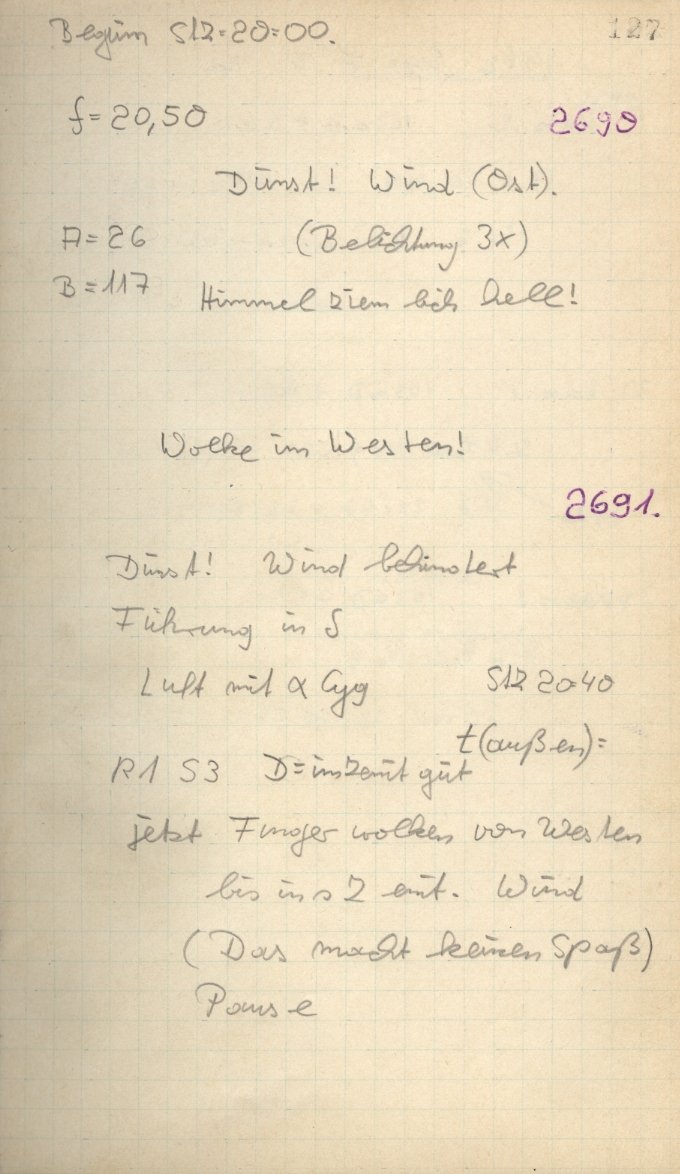 127
Beginn StZ=20=00.
f=20,50
2690
Dunst! Wind (Ost).
A=26 (Belichtung 3x)
B=117 Himmel ziemlich hell!
Wolke im Westen!
2691.
Dunst! Wind behindert
Führung in δ
Luft mit α Cyg StZ 20 40
t(außen)=
R1 S3 D= im Zenit gut
jetzt Finger wolken von Westen
bis ins Zenit. Wind
(Das macht keinen Spaß)
Pause